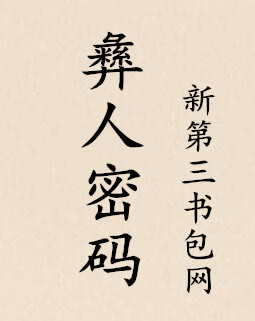 彝人密码
新第三书包网